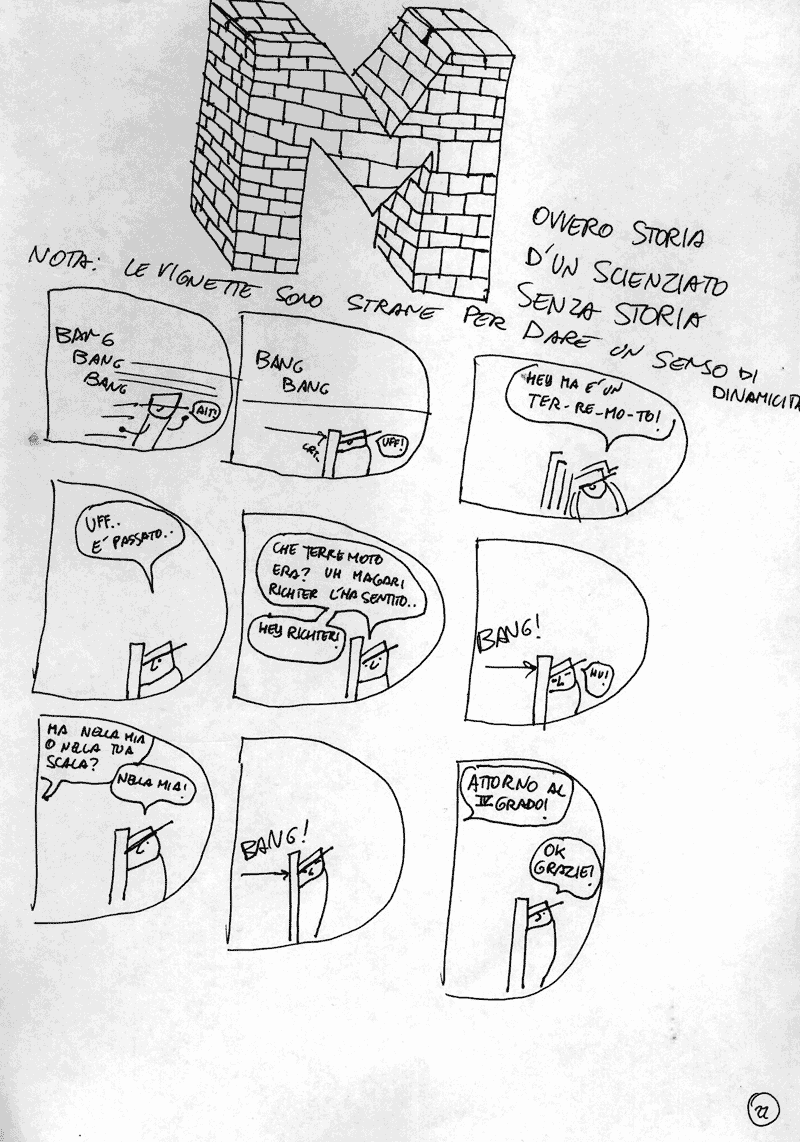 M
OVVERO STORIA
D'UN SCIENZIATO
SENZA STORIA
NOTA: LE VIGNETTE SONO STRANE PER DARE UN SENSO DI
DINAMICITÀ
BANG
BANG
BANG
AIT!
BANG
BANG
UFF!
HEY MA E' UN
TER-RE-MO-TO!
UFF..
E' PASSATO..
CHE TERREMOTO
ERA? UH MAGARI
RICHTER L'HA SENTITO..
HEY RICHTER!
BANG!
HU!
MA NELLA MIA
O NELLA TUA
SCALA?
NELLA MIA!
BANG!
ATTORNO AL
IV GRADO!
OK
GRAZIE!
22